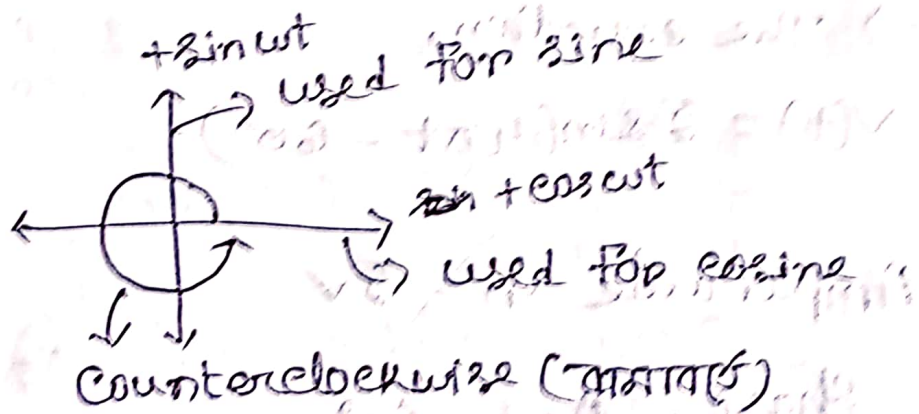 +sin wt
used for sine
+cos wt
used for cosine
Counterclockwise (বামাবর্তে)